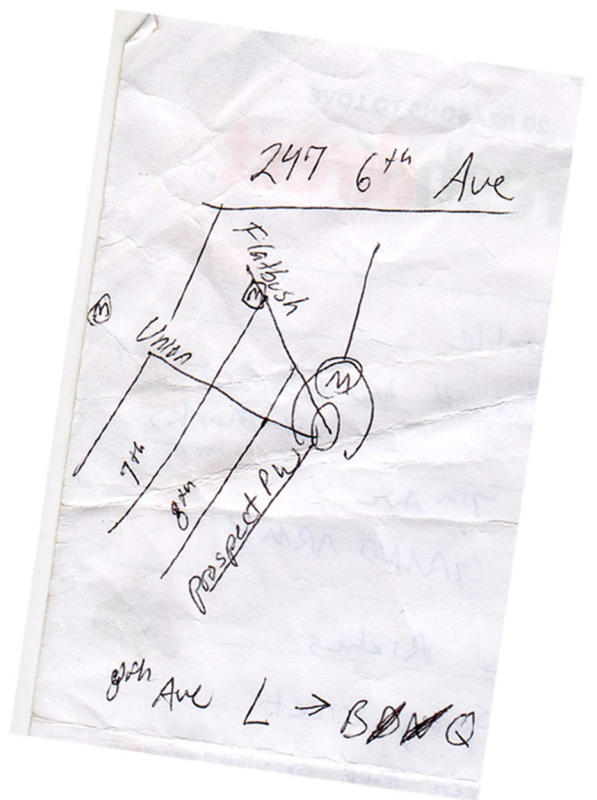 247 6th Ave
Flatbush
M
M
Union
M
7th
8th
Prospect Pk W
8th Ave L → B Q